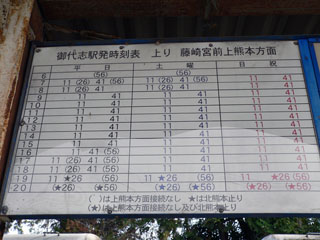 御代志駅発時刻表 上り 藤崎宮前上熊本方面
平日 土曜 日祝
6 (56) (56)
7 11 (26) 41 (56) 11 (26) 41 (56) 11 41
8 11 (26) 41 11 (26) 41 11 41
9 11 41 11 41 11 41
10 11 41 11 41 11 41
11 11 41 11 41 11 41
12 11 41 11 41 11 41
13 11 41 11 41 11 41
14 11 41 11 41 11 41
15 11 41 11 41 11 41
16 11 41 (56) 11 41 11 41
17 11 (26) 41 (56) 11 41 11 41
18 11 (26) 41 11 41 11 41
19 11 ★26 (56) 11 ★26 (56) 11 ★26 (56)
20 (★26) (★56) (★26) (★56) (★26) (★56)
( )は上熊本方面接続なし ★は北熊本止り
(★)は上熊本方面接続なし及び北熊本止り